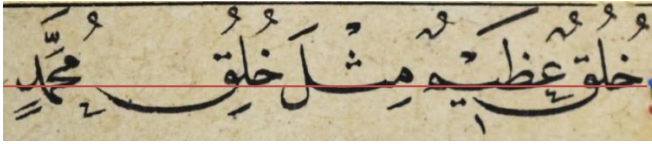 خُلُقٌ عَظِيمٌ مِثْلَ خُلُقِ مُحَمَّدٍ